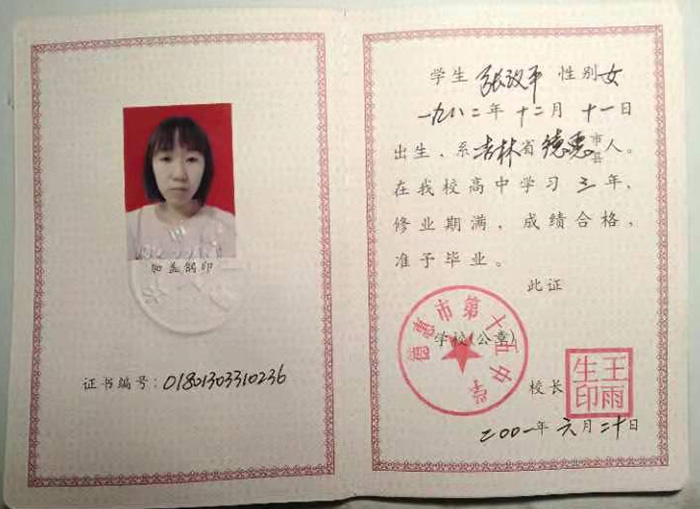 加盖钢印
证书编号:01801303310236
学生 张政平 性别女
一九八二年 十二月 十一日
出生、系吉林省德惠市县人。
在我校高中学习 三 年,
修业期满, 成绩合格,
准予毕业。
此证
德惠市第十五中学
学校(公章)
校长
王雨生印
二〇〇一年 六月二十日